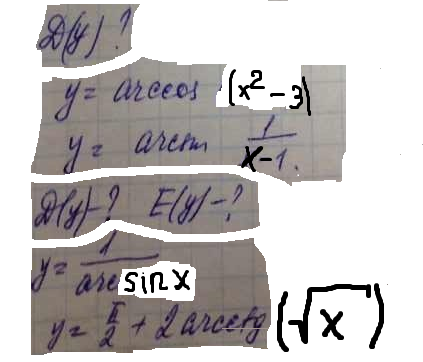 D(y)?
y = arccos (x² - 3)
y = arcsin 1/(x-1).
D(y)-? E(y)-?
y = 1/(arcsin x)
y = π/2 + 2 arcctg (√x)